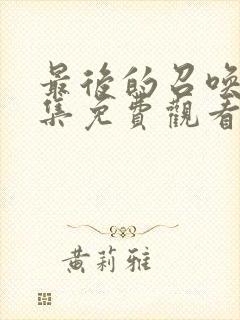 最後的召喚
集免費觀看
黄莉雅